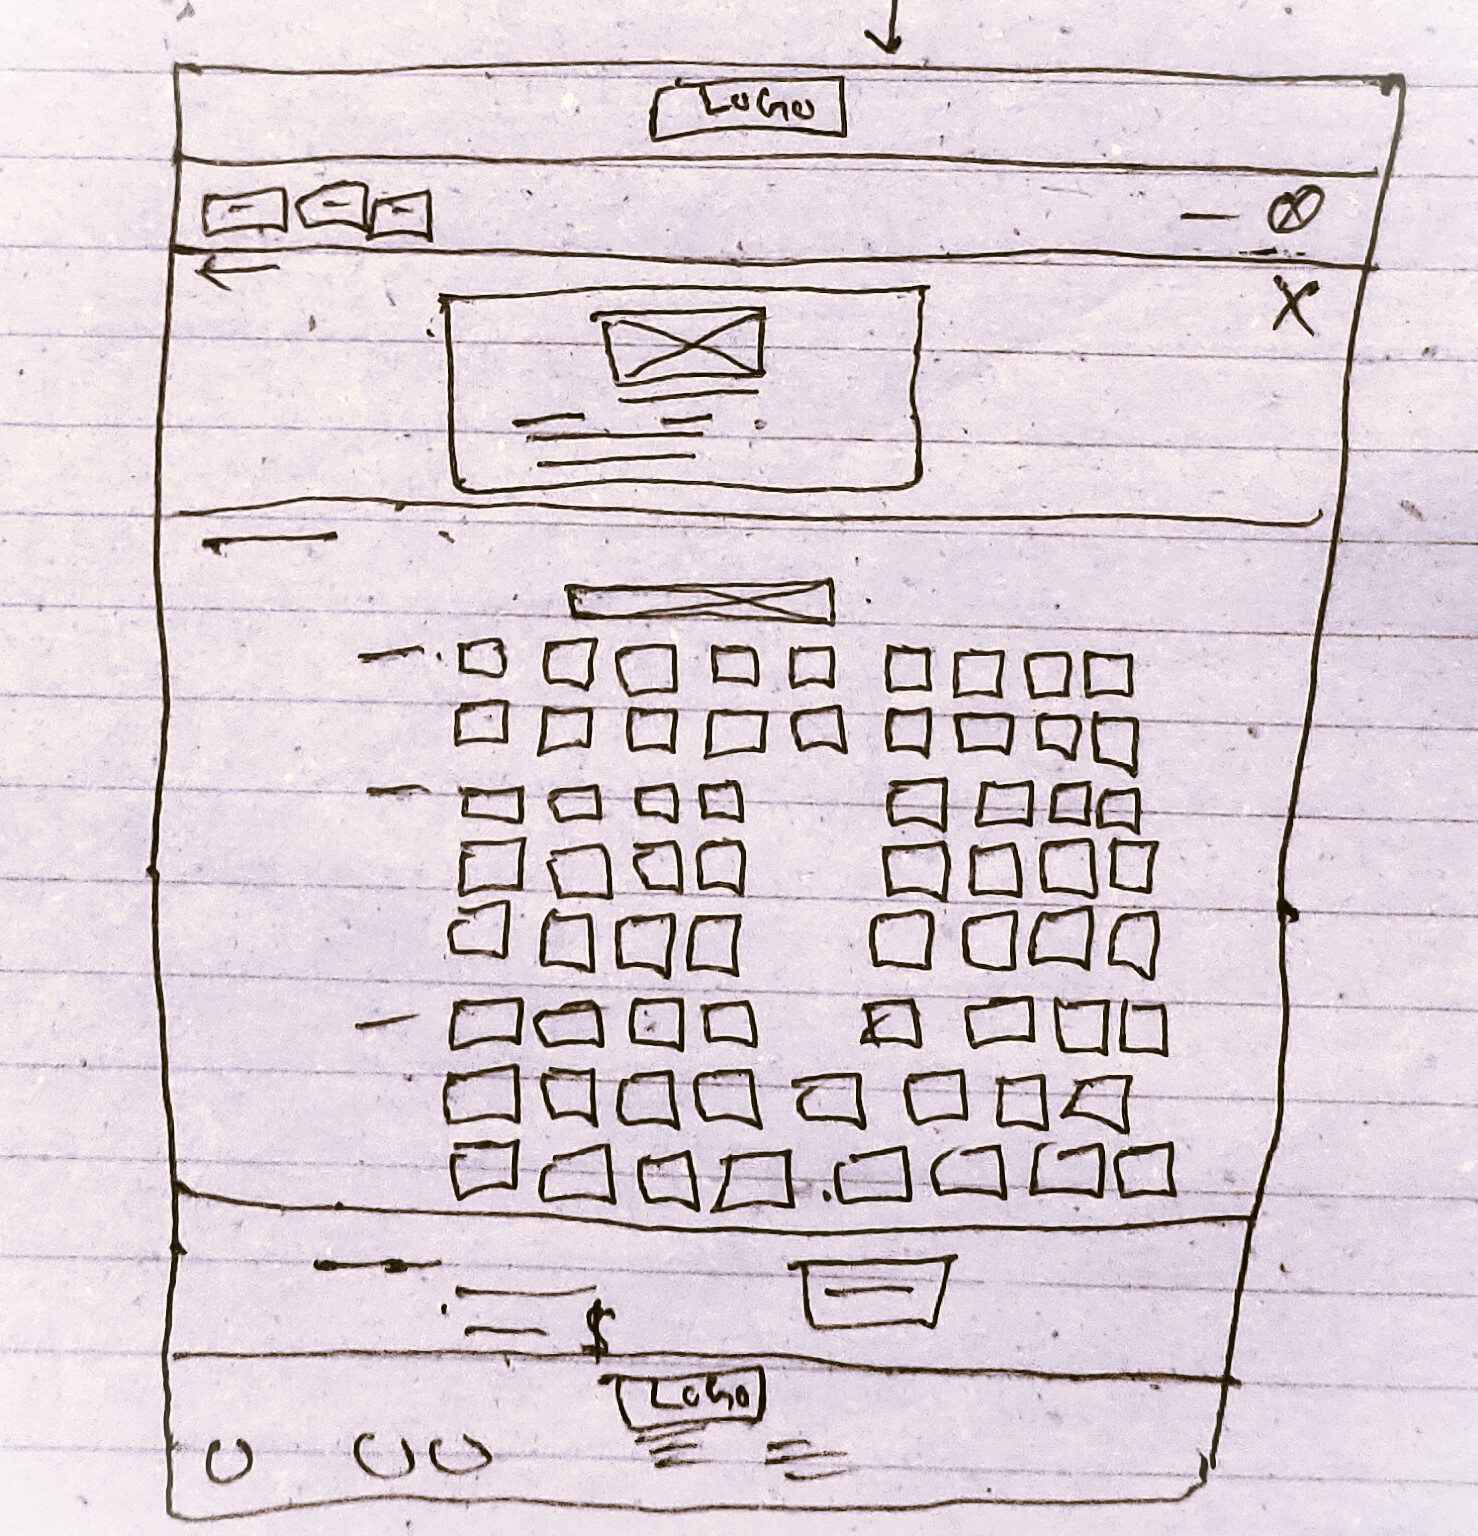 LOGO
$
LOGO